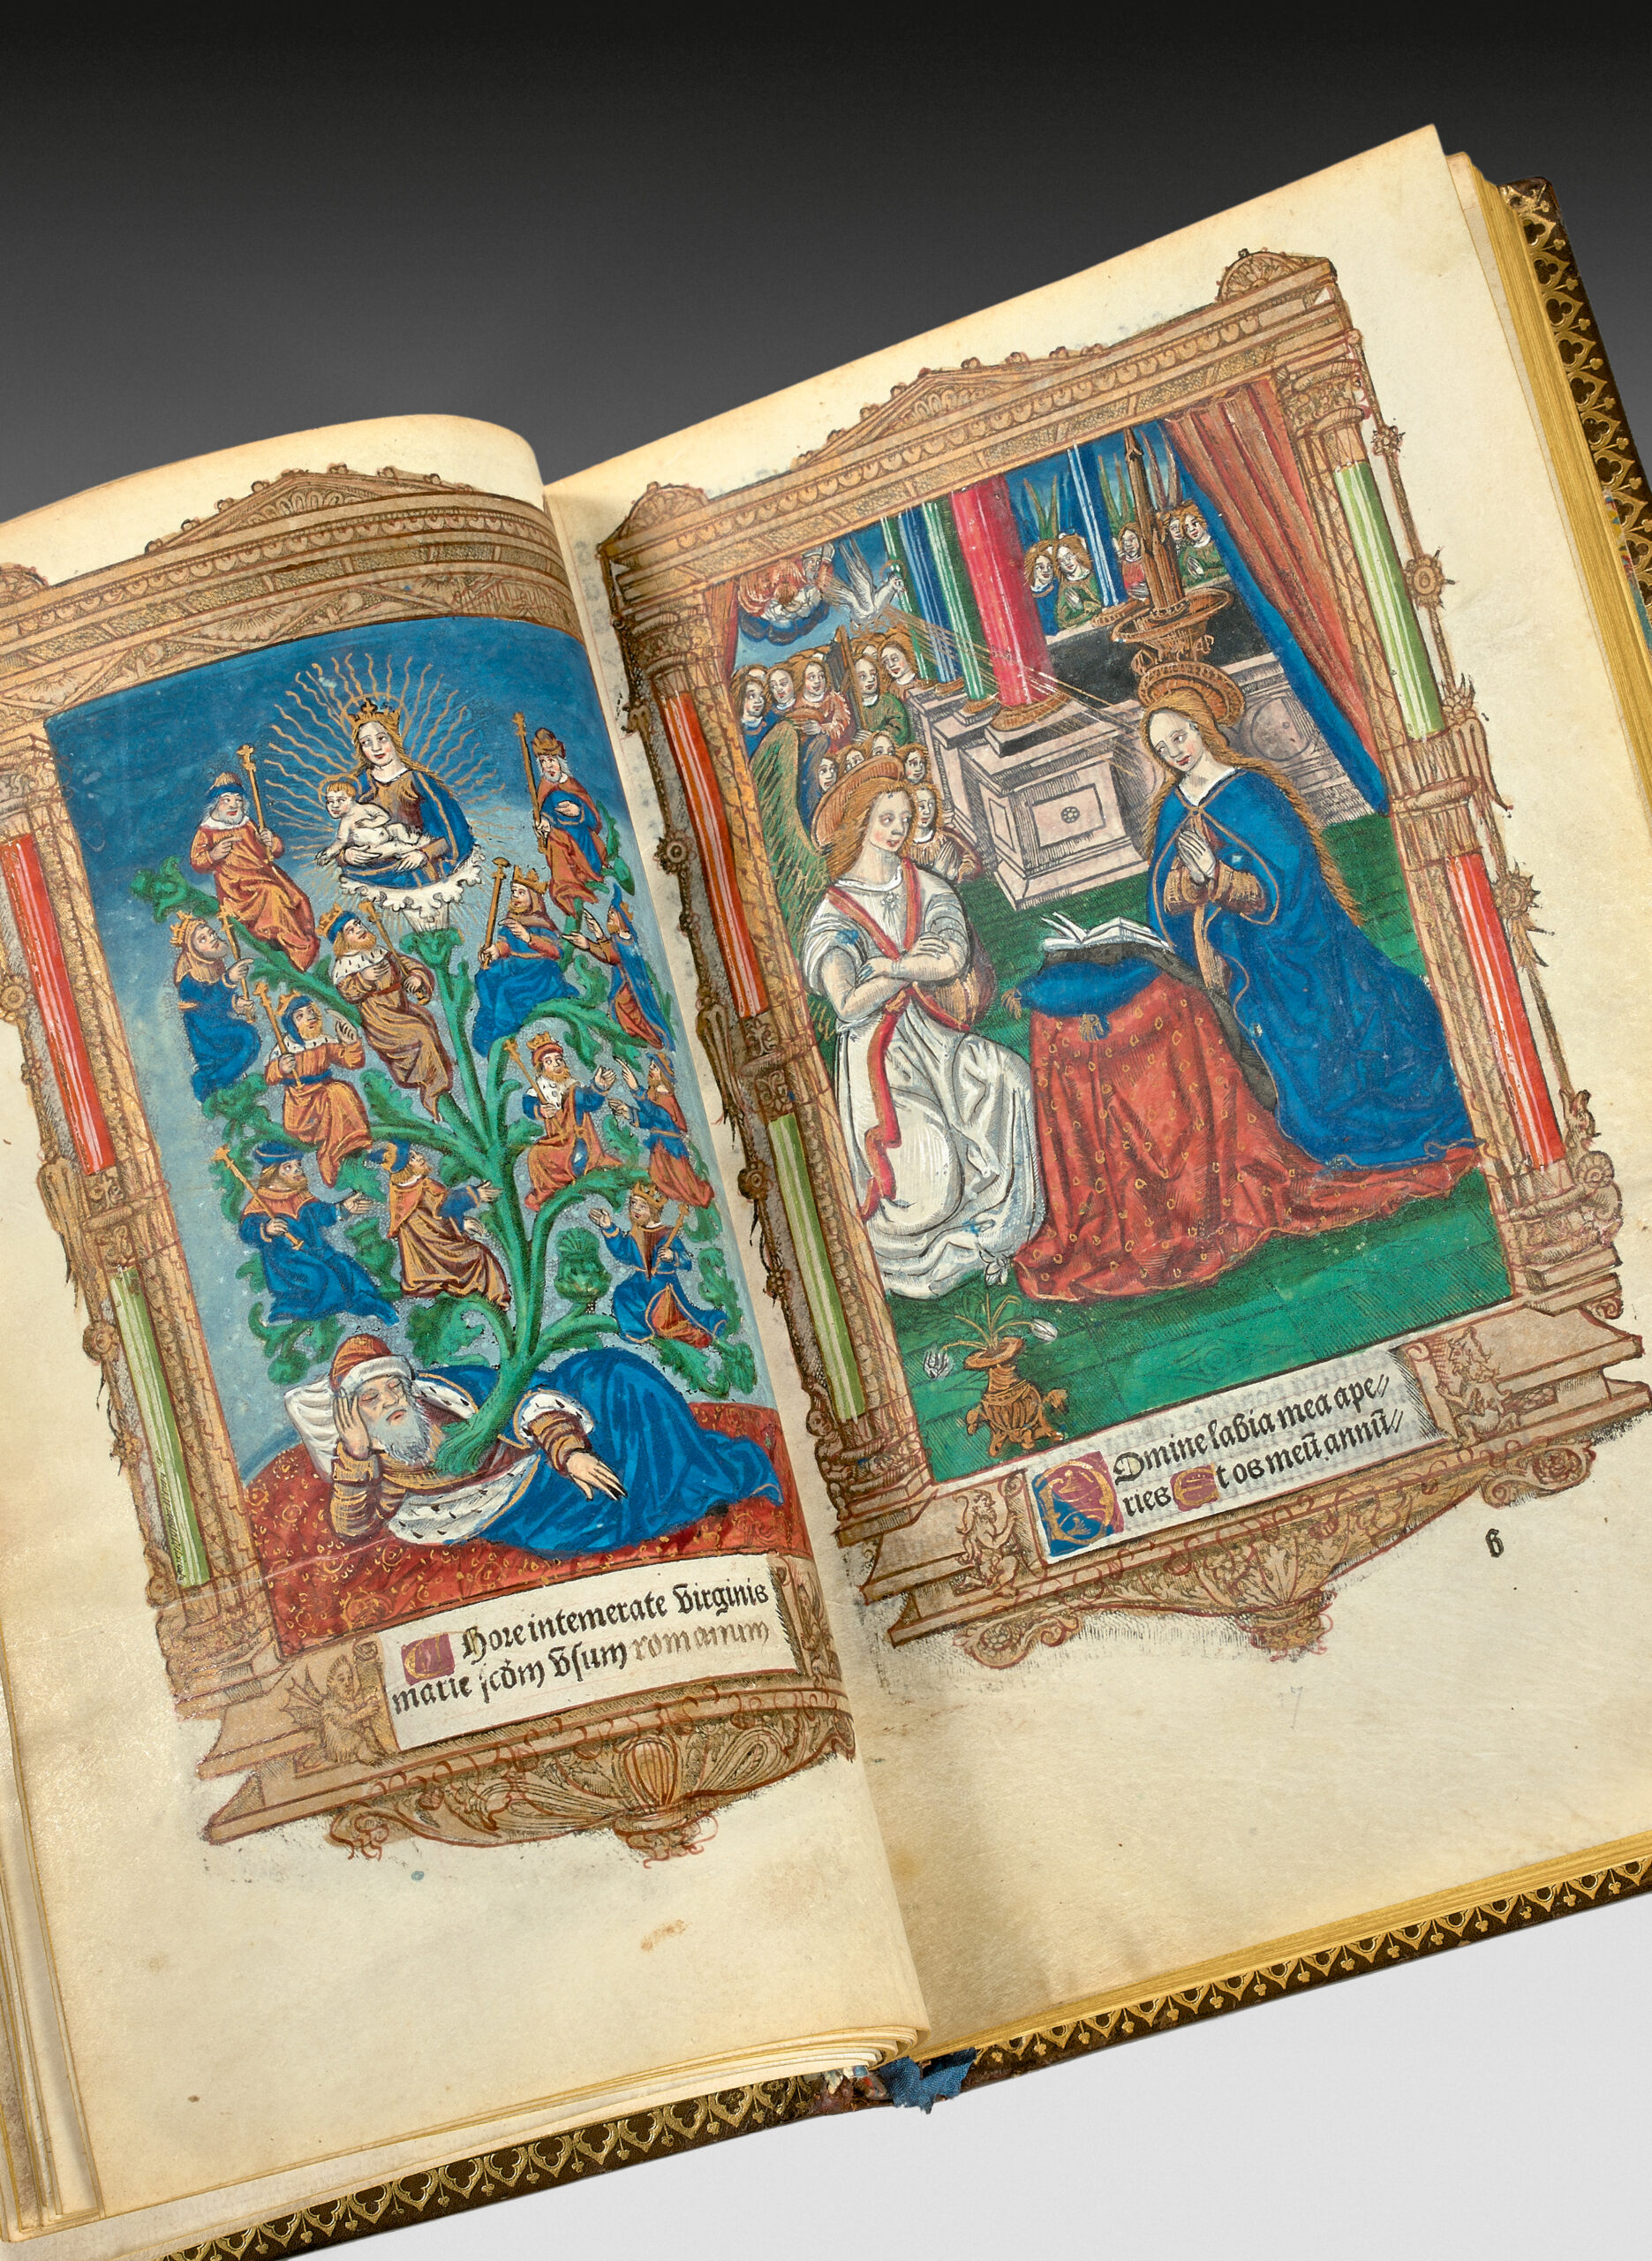 Hore intemerate virginis
marie scd̄m vsum romanum
Domine labia mea ape//
ries Et os meū annū//
b